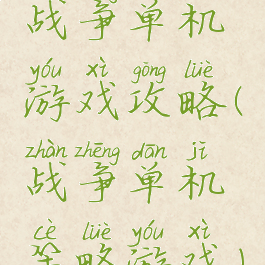 战争单机
yóu xì gōng lüè
游戏攻略(
zhàn zhēng dān jī
战争单机
cè lüè yóu xì
策略游戏)